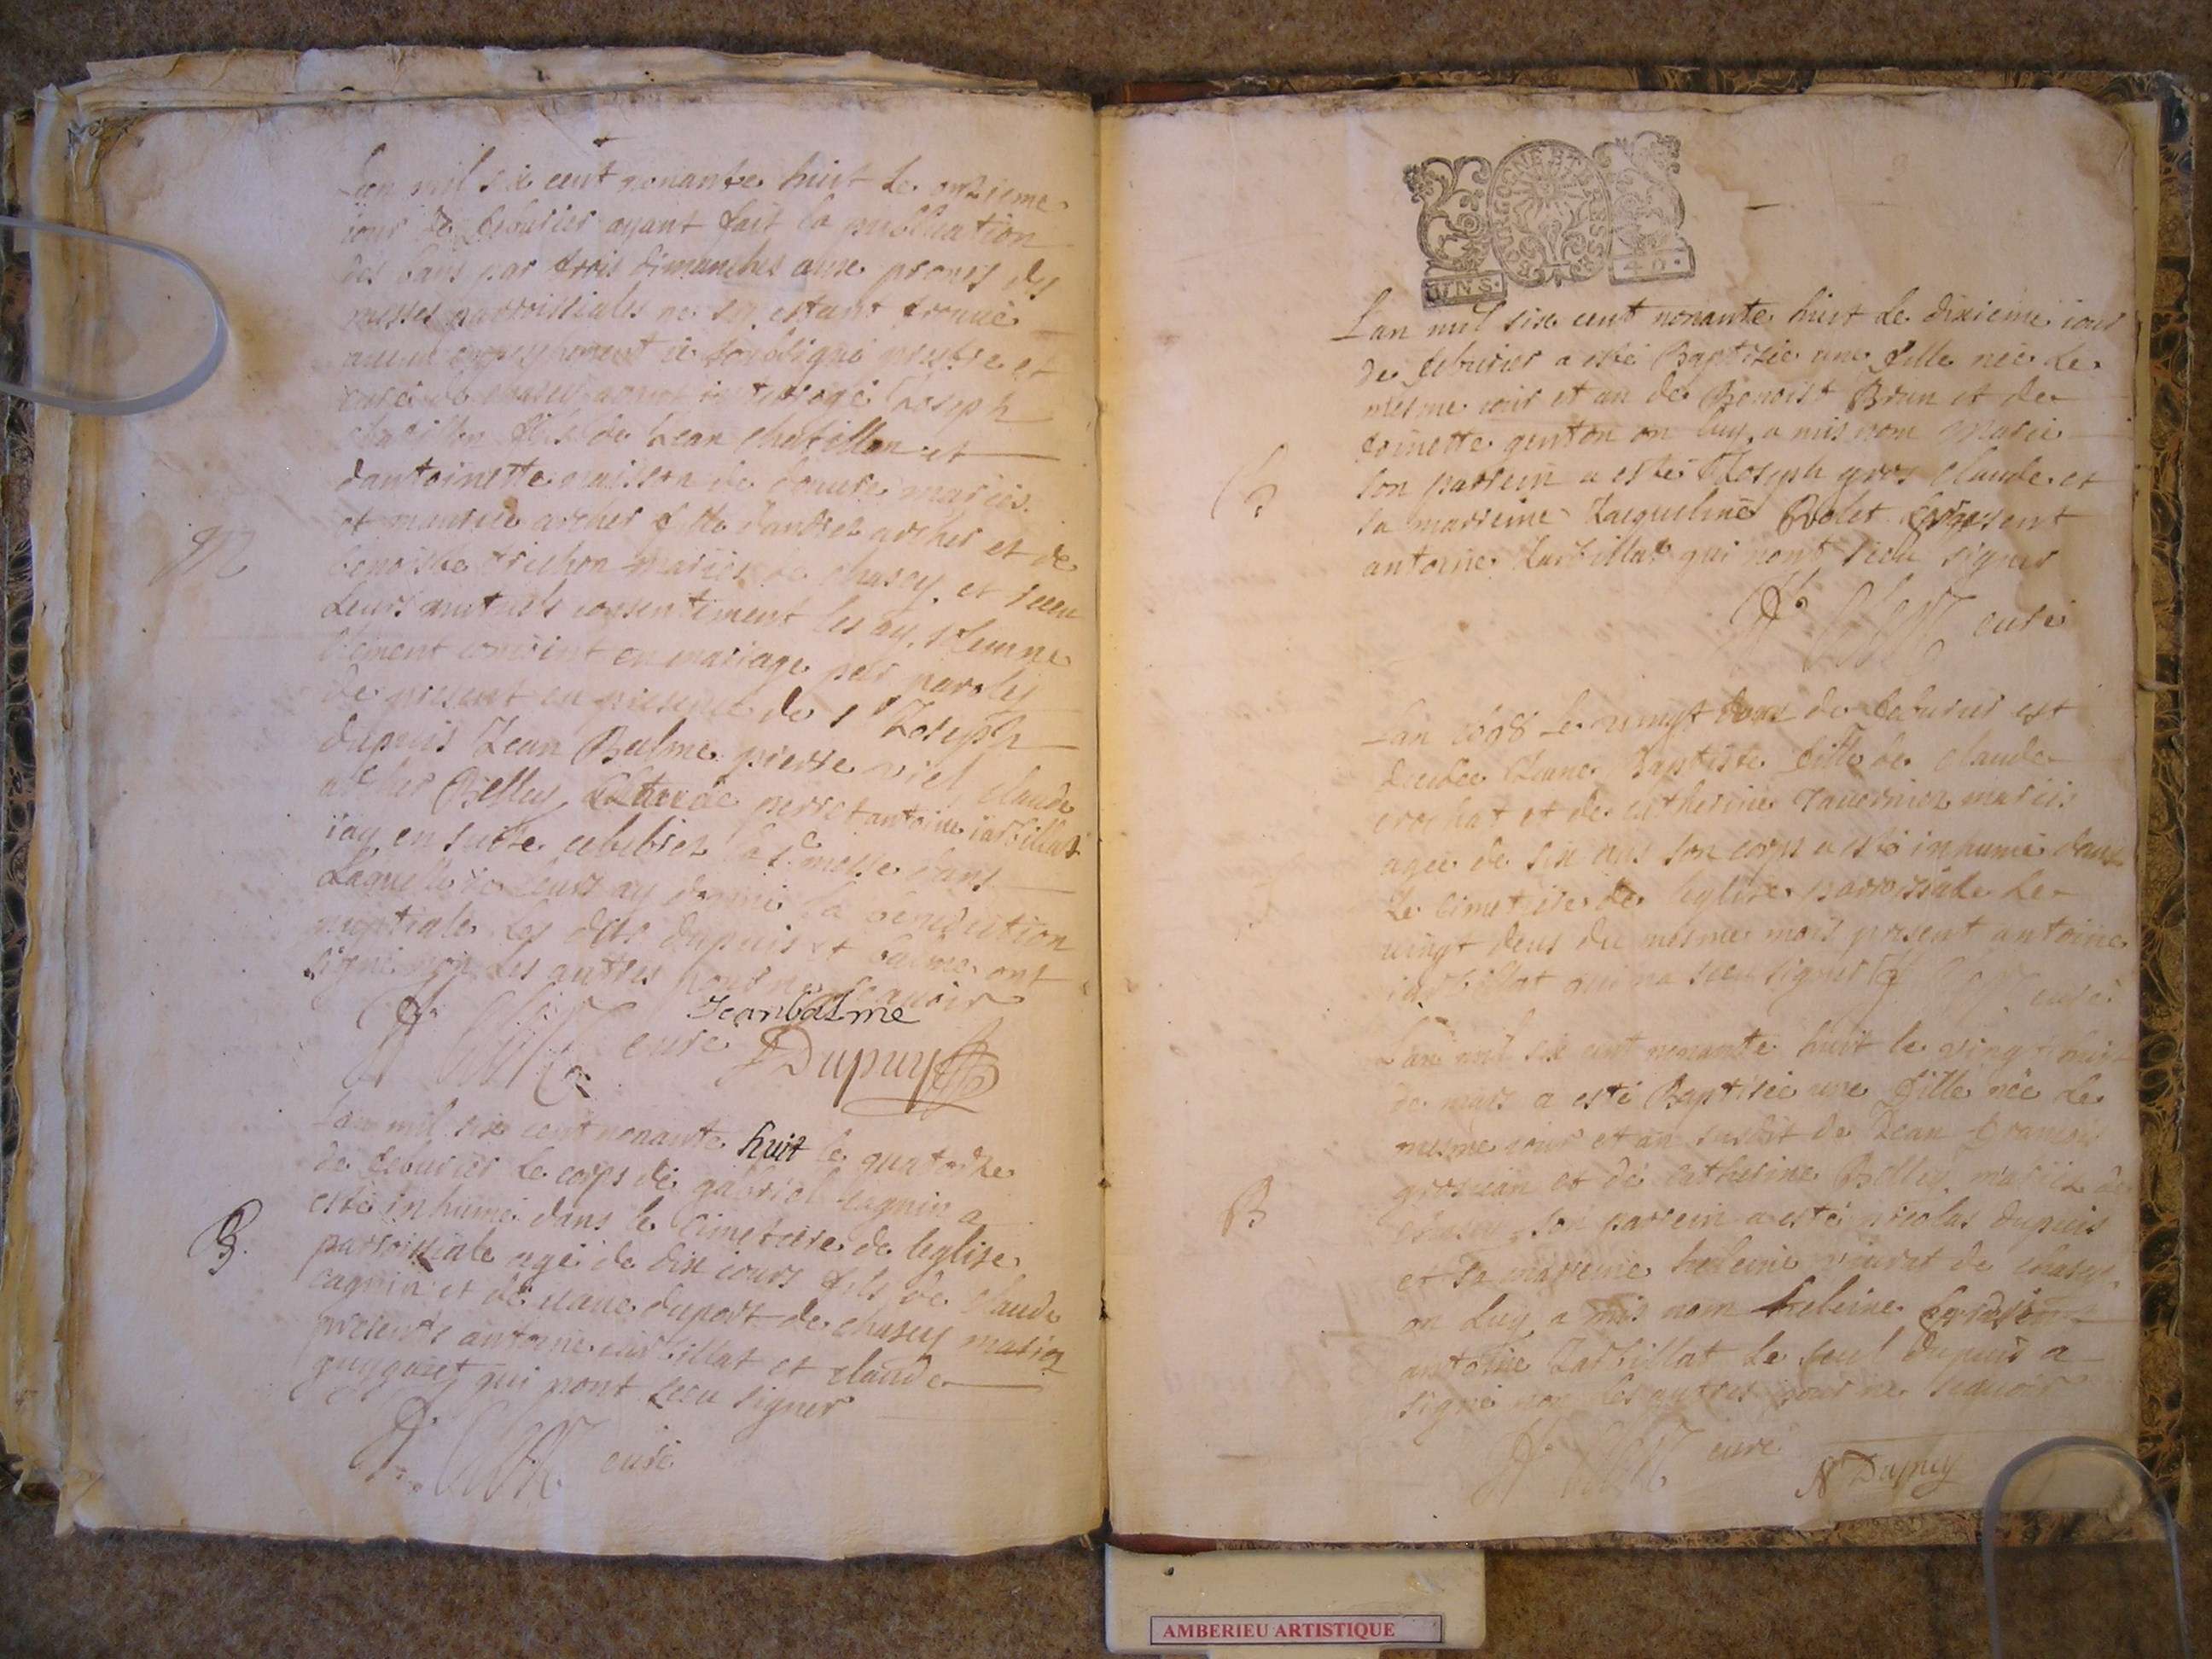 Lan mil six cent nonante huit le onzieme
iour de feburier ayant fait la publication
des bans par trois dimanches aux prones des
messes parroissiales ne sen estant trouué
aucun empeschement ie soubsigné prestre et
curé de chasey ayant interrogé Ioseph
chatillon fils de Iean chatillon et
dantoinette maisson de mariés
et archer fille dandrez archer et de
benoiste trichon mariés de chasey et receu
leurs mutuels consentiment les ay solemne
lement conioint en mariage par paroles
de present en presence de sr Ioseph
dupuis Iean Balme pierre viel claude
archer Belley perret antoine iarbillat
iay en suitte celebrez la ste messe dans
laquelle ie leurs ay donné la benediction
nuptiale les dits dupuis et balme ont
signé non les autres pour ne scauoir
Jean balme
curé Dupuy
M
Lan mil six cent nonante huit le quatorze
de feburier le corps de gabriel cagnin a
esté inhumé dans le cimetiere de leglise
parroissiale agé de dix iours fils de claude
cagnin et de ieane duport de chasey mariez
presents antoine iarbillat et claude
guygaret qui nont sceu signer
curé
B.
BOURGOGNE ET BRESSE
UN S. 4 D.
Lan mil six cent nonante huit le dixieme iour
de feburier a esté Baptisée une fille née le
mesme iour et an de Benoist Brun et de
toinette genton on luy a mis nom Marie
son parrein a esté Ioseph gros claude et
sa marreine Iacqueline Rolet present
antoine Iarbillat qui nont sceu signer
curé
B
Lan 1698 le vingt deux de feburier est
decedée Ieane Baptiste fille de claude
crochat et de catherine Tauernier mariés
agée de six ans son corps a esté inhumé dans
le cimetiere de leglise parroissiale le
vingt deus du mesme mois present antoine
iarbillat qui na sceu signer curé
Lan mil six cent nonante huit le vingt
de mars a esté Baptisée une fille née le
mesme iour et an susdit de Iean francois
grosiean et de catherine Belley mariez de
chasey son parrein a esté nicolas dupuis
et sa marreine heleine de chasey
on luy a mis nom heleine
antoine Iarbillat le seul dupuis a
signé non les autres pour ne scauoir
curé
N Dupuy
B
AMBERIEU ARTISTIQUE